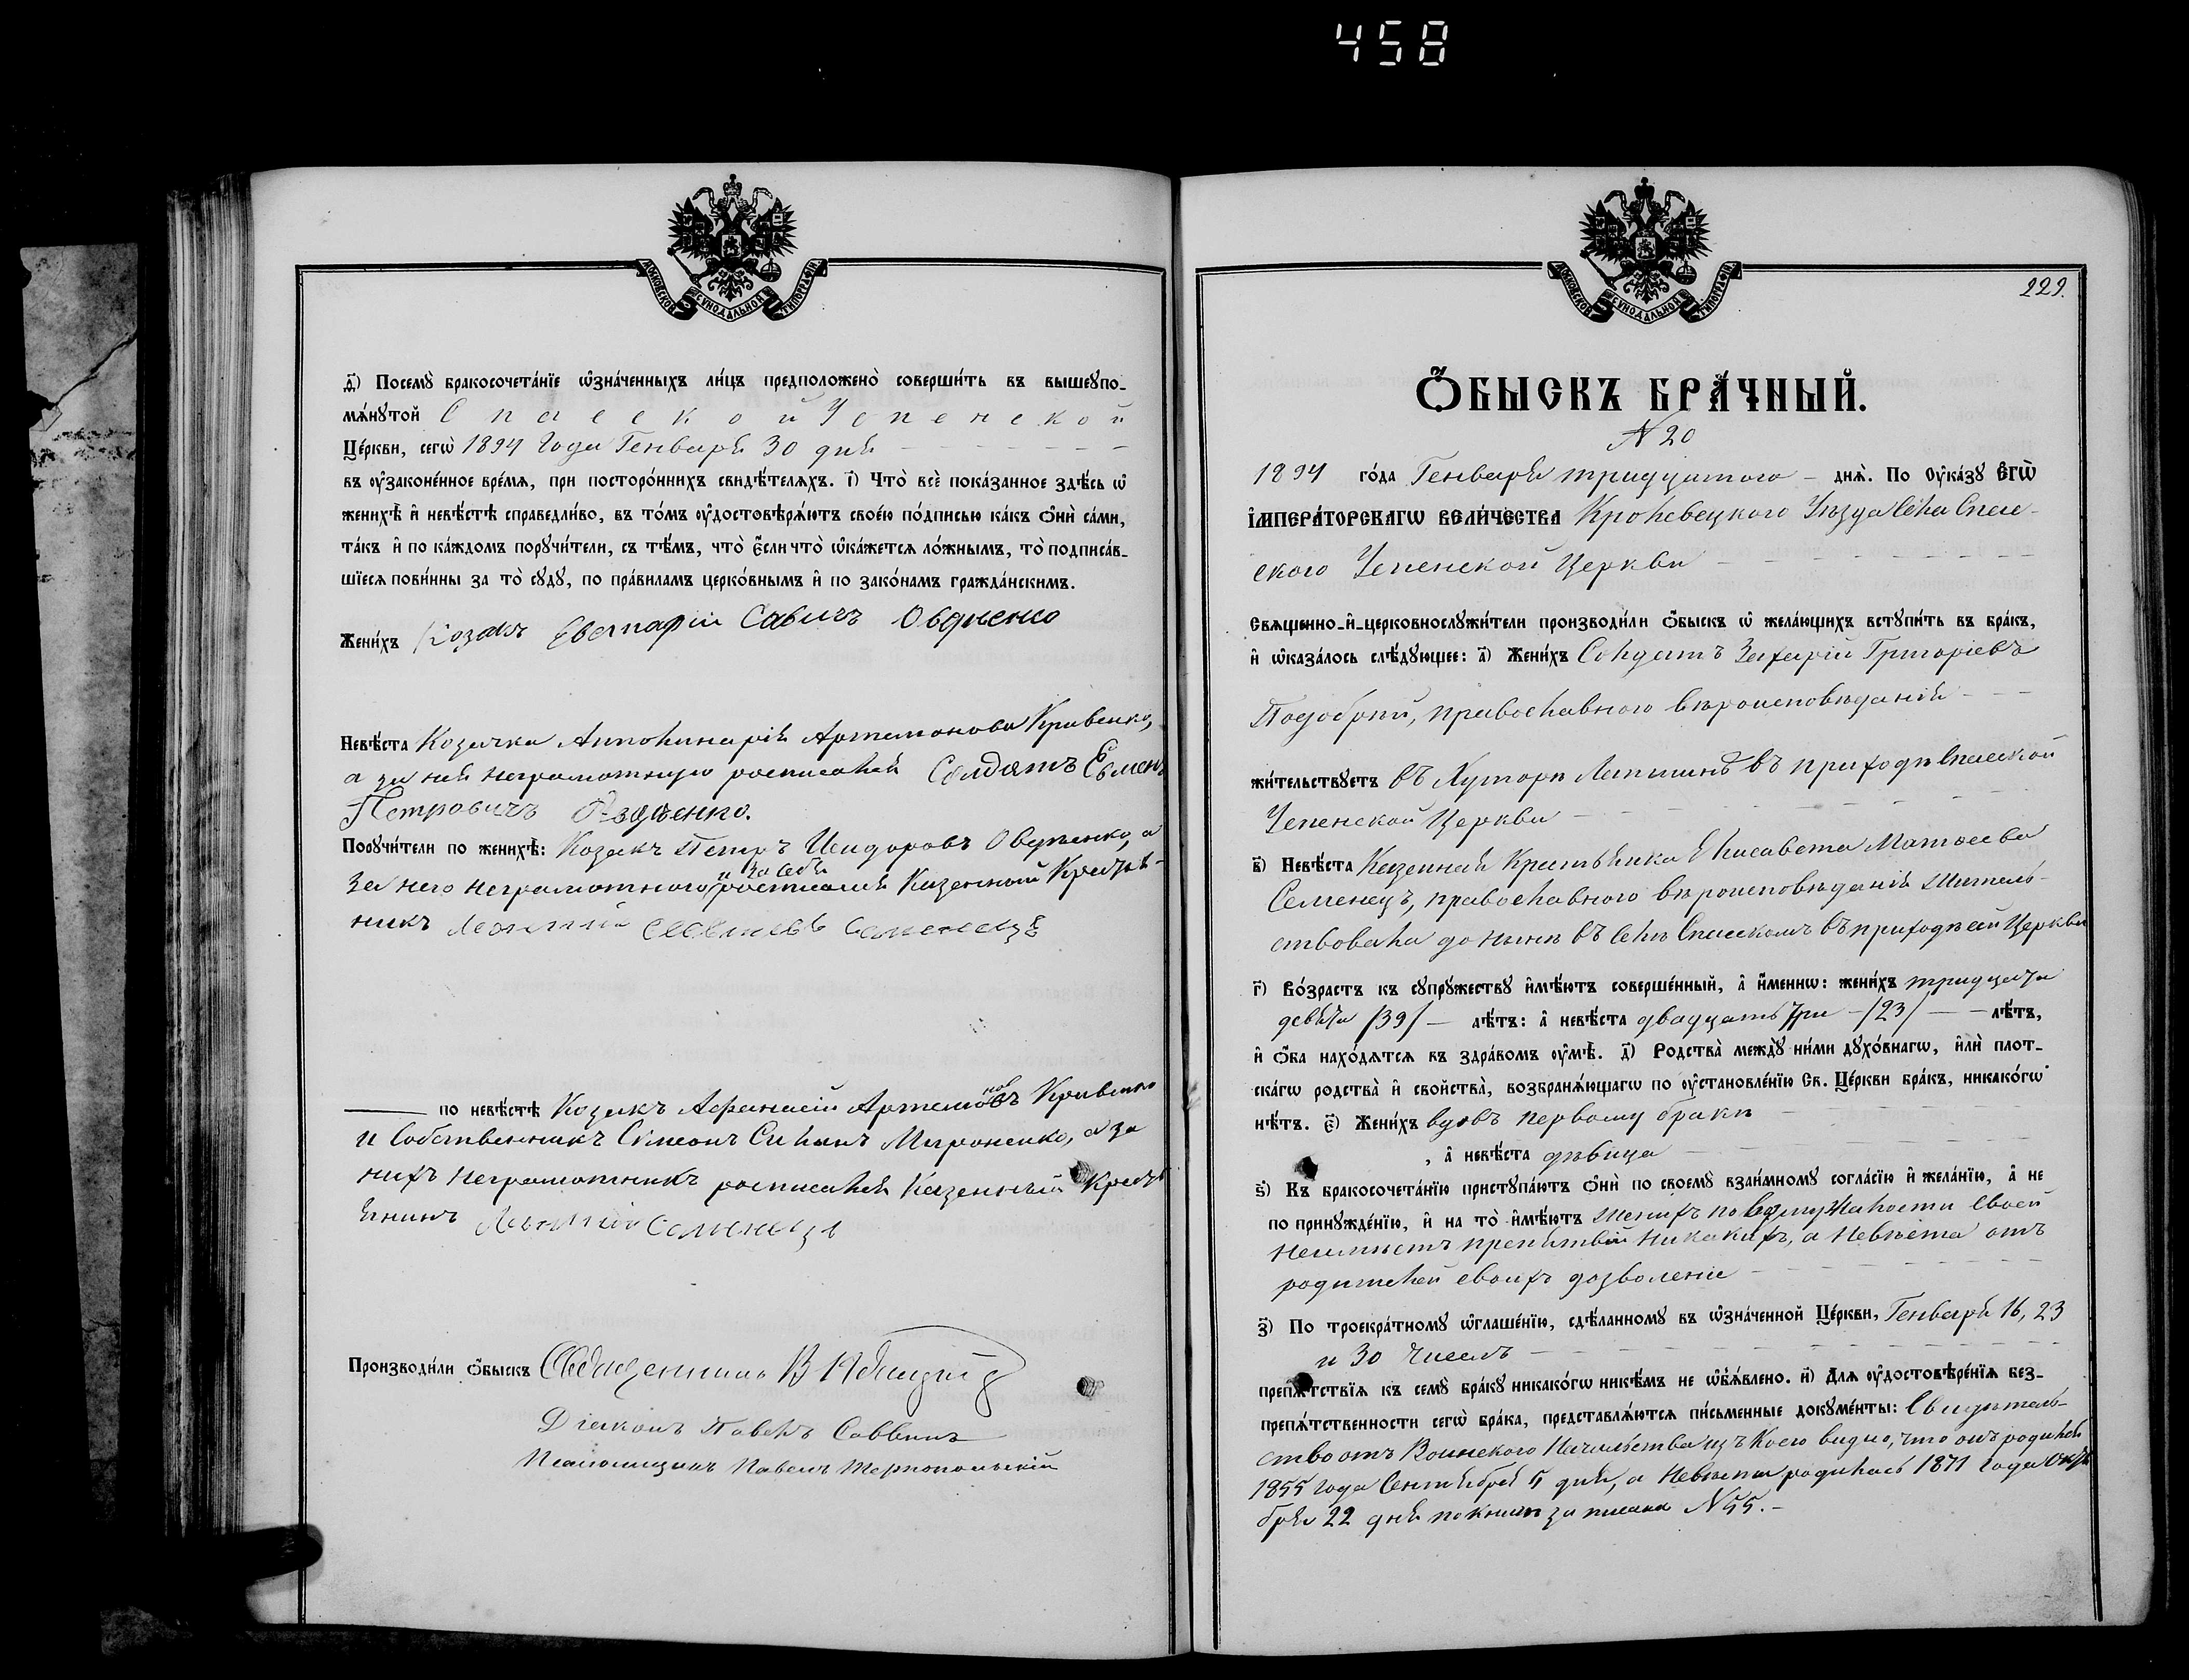 458
МОСКОВСКОЙ СѴНОДАЛЬНОЙ ТИПОГРАФІИ
д҃і) Посемꙋ̀ бракосочета́нїе ѡ҆зна́ченныхъ ли́цъ предположено̀ соверши́ть въ вышеꙋпо-
мѧ́нꙋтой Спасской Успенской
Це́ркви, сегѡ̀ 1894 года Генваря 30 дня
въ ᲂу҆законе́нное вре́мѧ, при посторо́ннихъ свидѣ́телѧхъ. і҃) Что̀ всѐ пока́занное здѣ́сь ѡ҆
женихѣ̀ и҆ невѣ́стѣ справедли́во, въ то́мъ ᲂу҆достовѣрѧ́ютъ свое́ю по́дписью ка́къ ѻ҆нѝ са́ми,
та́къ и҆ по ка́ждомъ порꙋчи́тели, съ тѣ́мъ, что̀ є҆́сли что̀ ѡ҆ка́жетсѧ ло́жнымъ, то̀ подписа́в-
шїесѧ пови́нны за то̀ сꙋдꙋ̀, по пра́виламъ церко́внымъ и҆ по зако́намъ гражда́нскимъ.
Жени́хъ Козакъ Евстафій Савичъ Овдіенко
Невѣ́ста Козачка Апполинарія Артамонова Кривенко,
а за ней неграмотную росписался Солдатъ Евмен
Петровичъ Авдіенко.
Порꙋчи́тели по женихѣ̀: Козакъ Петръ Исидоровъ Овдіенко, а
и за себя
за него неграмотного росписался Казенный Крестья-
никъ Леонтий Семенецъ
по невѣ́стѣ Козакъ Афанасій Артамоновъ Кривенко
и Собственникъ Симеонъ Силинъ Мироненко, а за
нихъ неграмотныхъ росписался Казенный Кресть
янинъ Леонтий Семенецъ
Производи́ли ѻ҆́быскъ Священникъ В
Діяконъ Павелъ Саввинъ
Псаломщикъ Павелъ Тернопольскій
МОСКОВСКОЙ СѴНОДАЛЬНОЙ ТИПОГРАФІИ
229.
Ѻ҆́БЫСКЪ БРА́ЧНЫЙ.
N 20
1894 го́да Генваря тридцятого днѧ̀. По Оу҆ка́зꙋ Є҆ГѠ̀
І҆МПЕРА́ТОРСКАГѠ ВЕЛИ́ЧЕСТВА Кролевецкого Уѣзда Села Спас-
ского Успенской Церкви
Свѧщенно-и҆-церковнослꙋжи́тели производи́ли ѻ҆́быскъ ѡ҆ жела́ющихъ встꙋпи́ть въ бра́къ,
и҆ ѡ҆каза́лось слѣ́дꙋющее: а҃) Жени́хъ Солдатъ Захарій Григоріевъ
Подобрий, православного вѣроисповѣданія
жи́тельствꙋетъ въ Хуторѣ Лапшинѣ въ приходѣ Спасской
Успенской Церкви
в҃) Невѣ́ста Казенная Крестьянка Елисавета Матѳеева
Семенецъ, православного вѣроисповѣданія житель-
ствовала до нынѣ въ Селѣ Спасскомъ въ приходѣ сей Церкви
г҃) Во́зрастъ къ сꙋпрꙋ́жествꙋ и҆мѣ́ютъ соверше́нный, а҆ и҆́менно: жени́хъ тридцять
девять /39/ лѣ́тъ: а҆ невѣ́ста двадцать три /23/ лѣ́тъ,
и҆ ѻ҆́ба нахо́дѧтсѧ въ здра́вомъ ᲂу҆мѣ̀. д҃) Родства̀ междꙋ̀ ни́ми дꙋхо́внагѡ, и҆лѝ плот-
ска́гѡ родства̀ и҆ свойства̀, возбранѧ́ющагѡ по ᲂу҆становле́нїю Св. Це́ркви бра́къ, никако́гѡ
нѣ́тъ. є҃) Жени́хъ вдовъ по первому бракѣ
, а҆ невѣ́ста дѣвица
ѕ҃) Къ бракосочета́нїю пристꙋпа́ютъ ѻ҆нѝ по своемꙋ̀ взаи́мномꙋ согла́сїю и҆ жела́нїю, а҆ не
по принꙋжде́нїю, и҆ на то̀ и҆мѣ́ютъ Женихъ по возмужалости своей
неимѣетъ препятвій никакихъ, а Невѣста отъ
родителей своихъ дозволеніе
з҃) По троекра́тномꙋ ѡ҆глаше́нїю, сдѣ́ланномꙋ въ ѡ҆зна́ченной Це́ркви, Генваря 16, 23
и 30 чиселъ
препѧ́тствїѧ къ семꙋ̀ бра́кꙋ никако́гѡ никѣ́мъ не ѡ҆б̾ѧ́влено. и҃) Длѧ ᲂу҆достовѣре́нїѧ без-
препѧ́тственности сегѡ̀ бра́ка, представлѧ́ютсѧ пи́сьменные докꙋме́нты: Свидѣтель-
ство отъ Воинского Начальства изъ коего видно, что онъ родился
1855 года Сентября 5 дня, а Невѣста родилась 1871 года Октя
бря 22 дня по книгѣ записана N 55.-